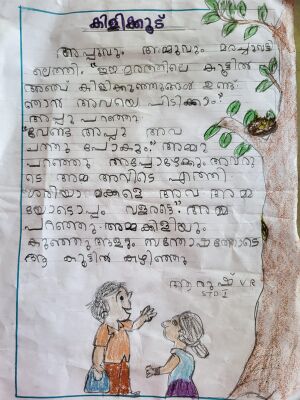 കിളിക്കൂട്
അപ്പുവും അമ്മുവും മരച്ചുവട്ടി
ലെത്തി. "ഈ മരത്തിലെ കൂട്ടിൽ
അഞ്ച് കിളിക്കുഞ്ഞുങ്ങൾ ഉണ്ട്
ഞാൻ അവയെ പിടിക്കാം."
അപ്പു പറഞ്ഞു.
"വേണ്ട അപ്പു അവ
പറന്നു പോകും." അമ്മു
പറഞ്ഞു അപ്പോഴേക്കും അവരു
ടെ അമ്മ അവിടെ എത്തി.
ശരിയാ മക്കളെ അവ അമ്മ
യോടൊപ്പം വളരട്ടെ." അമ്മ
പറഞ്ഞു. അമ്മക്കിളിയും
കുഞ്ഞുങ്ങളും സന്തോഷത്തോടെ
ആ കൂട്ടിൽ കഴിഞ്ഞു
V R
STD I